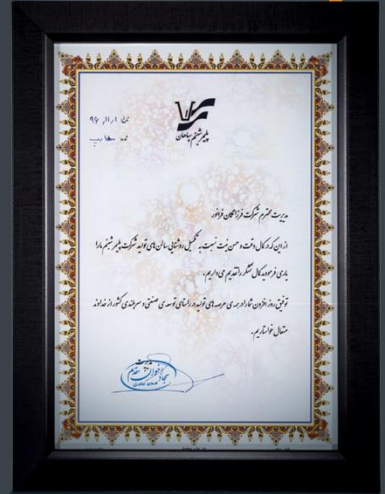 پلیمر شبنم سپاهان
مدیریت محترم شرکت فرزانگان فرانور
از این که در کمال دقت و حسن نیت نسبت به تکمیل روشنایی سالن های تولید شرکت پلیمر شبنم ما را
یاری فرمودید کمال تشکر را تقدیم می داریم.
توفیق روز افزون شما را در همه ی عرصه های تولید در راستای توسعه ی صنعتی و سربلندی کشور از خداوند
متعال خواستاریم.
مدیریت